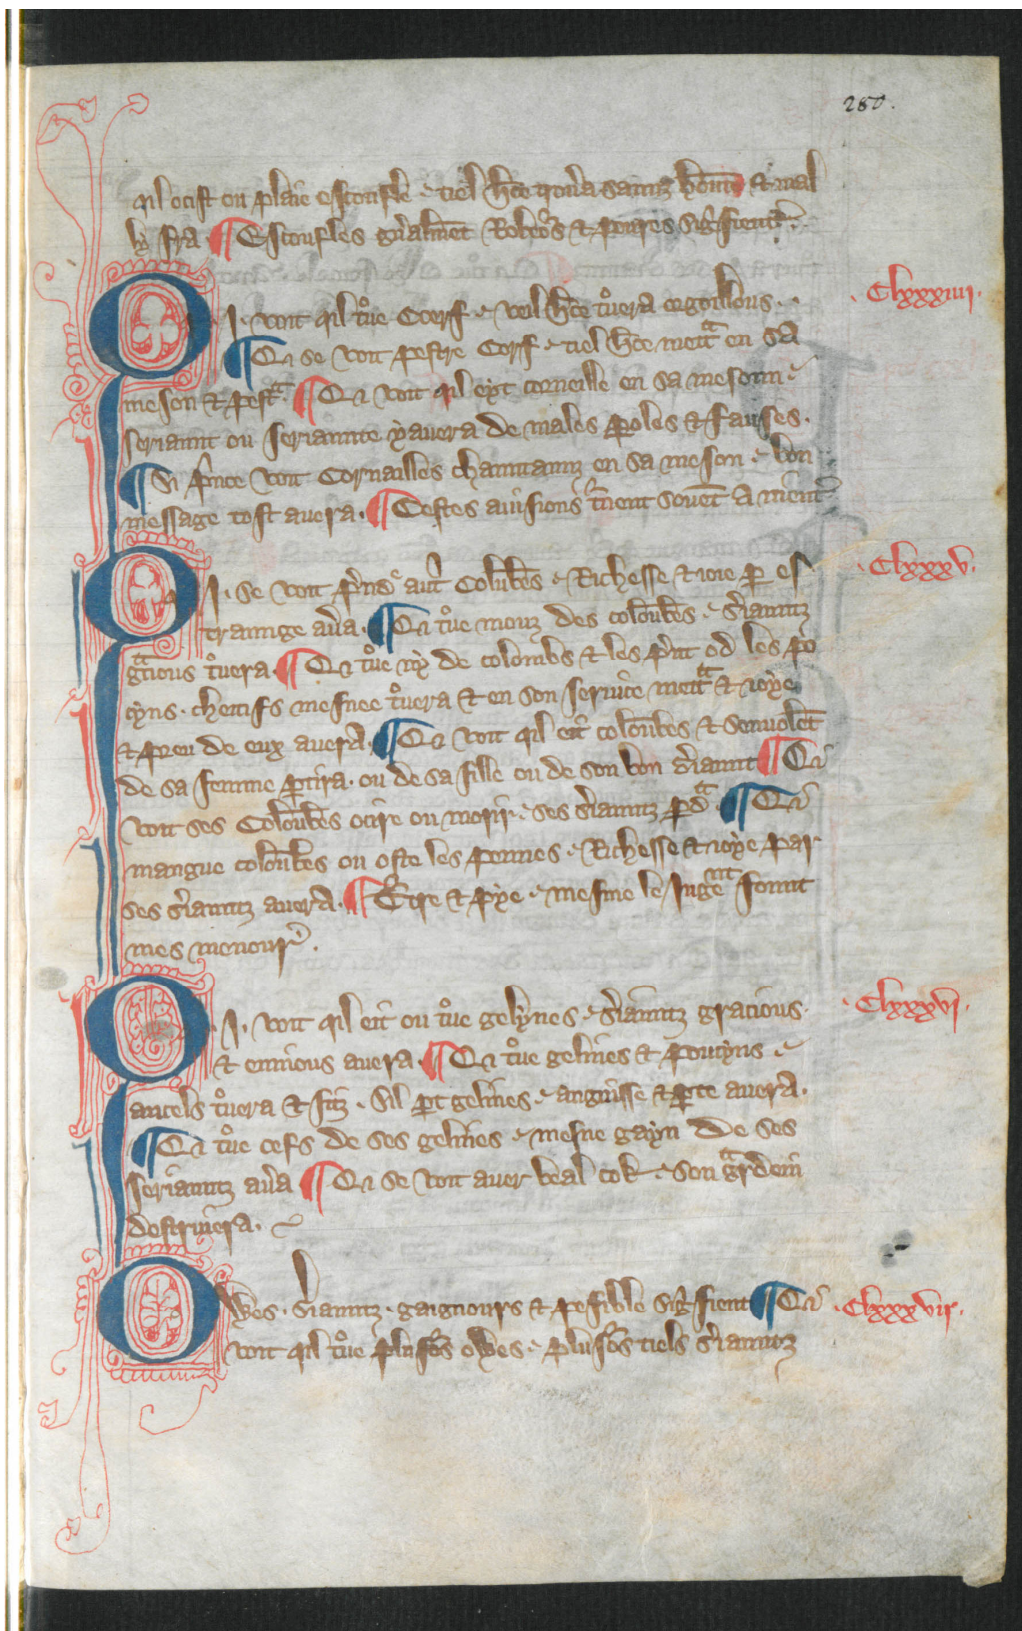 280.
qil ocist ou plaie escoufle · tiel hõe trou'a sanz et mal
ly fra ¶ Escoufles gn'alment Robeors et poures signifient
· Clxxxiiii ·
Q I · voit qil tue Coerf · veil hõe t°uera orgoillous ·
¶ Qi se voit pestre Corf · tiel hõe mettra en sa
meson et pestra ¶ Qi voit qil eyt corneille en sa mesoun ·
seriaunt ou seriaunte y avera de males p̱oles et fauses ·
¶ Si p'nce voit Cornailles chauntaunz en sa meson · bon
message tost avera · ¶ Cestes avisions t'nent sovet a ment'
· Clxxxv ·
Q I · se voit p'ndre au' Colu̅bes · Richesse et ioie p̱ es
traunge av'a · ¶ Qi t°ue mouz des colou̅bes · s'iauntz
g̃cious t°uera ¶ Qi t°ue ny de colombs et les p'nt od les po
cyns · chetifs mesnee t°uera et en son servise mettra et ioye
et preu de eux avera · ¶ Qi voit qil eit colou̅bes et senvole̅t
de sa femme p̱tira · ou de sa fille ou de son bon s'iaunt ¶ Qi
voit ses Colou̅bes ocire ou morir · ses s'iauntz p̱dra ¶ Qi
mangue colou̅bes ou oste les pennes · Richesse et ioye par
ses s'iauntz avera · ¶ et pye · mesme le Iugement sount
mes menour' ·
· Clxxxvi ·
Q I · voit qil eit ou t°ue gelynes · s'iauntz gracious ·
et envious avera ¶ Qi t°ue gelines et poucyns ·
auncels t°uera et fitz · Sil p̱t gelines · anguisse et p̱te avera ·
¶ Qi t°ue oefs de ses gelines · mesne gayn de ses
seriauntz av'a ¶ Qi se voit aver beal cok · son gardein
destruiera ·
· Clxxxvii ·
O Wes · s'iauntz · gaignours et pesible signifient ¶ Qi
voit qil t°ue plusors owes · plusors tiels s'iauntz